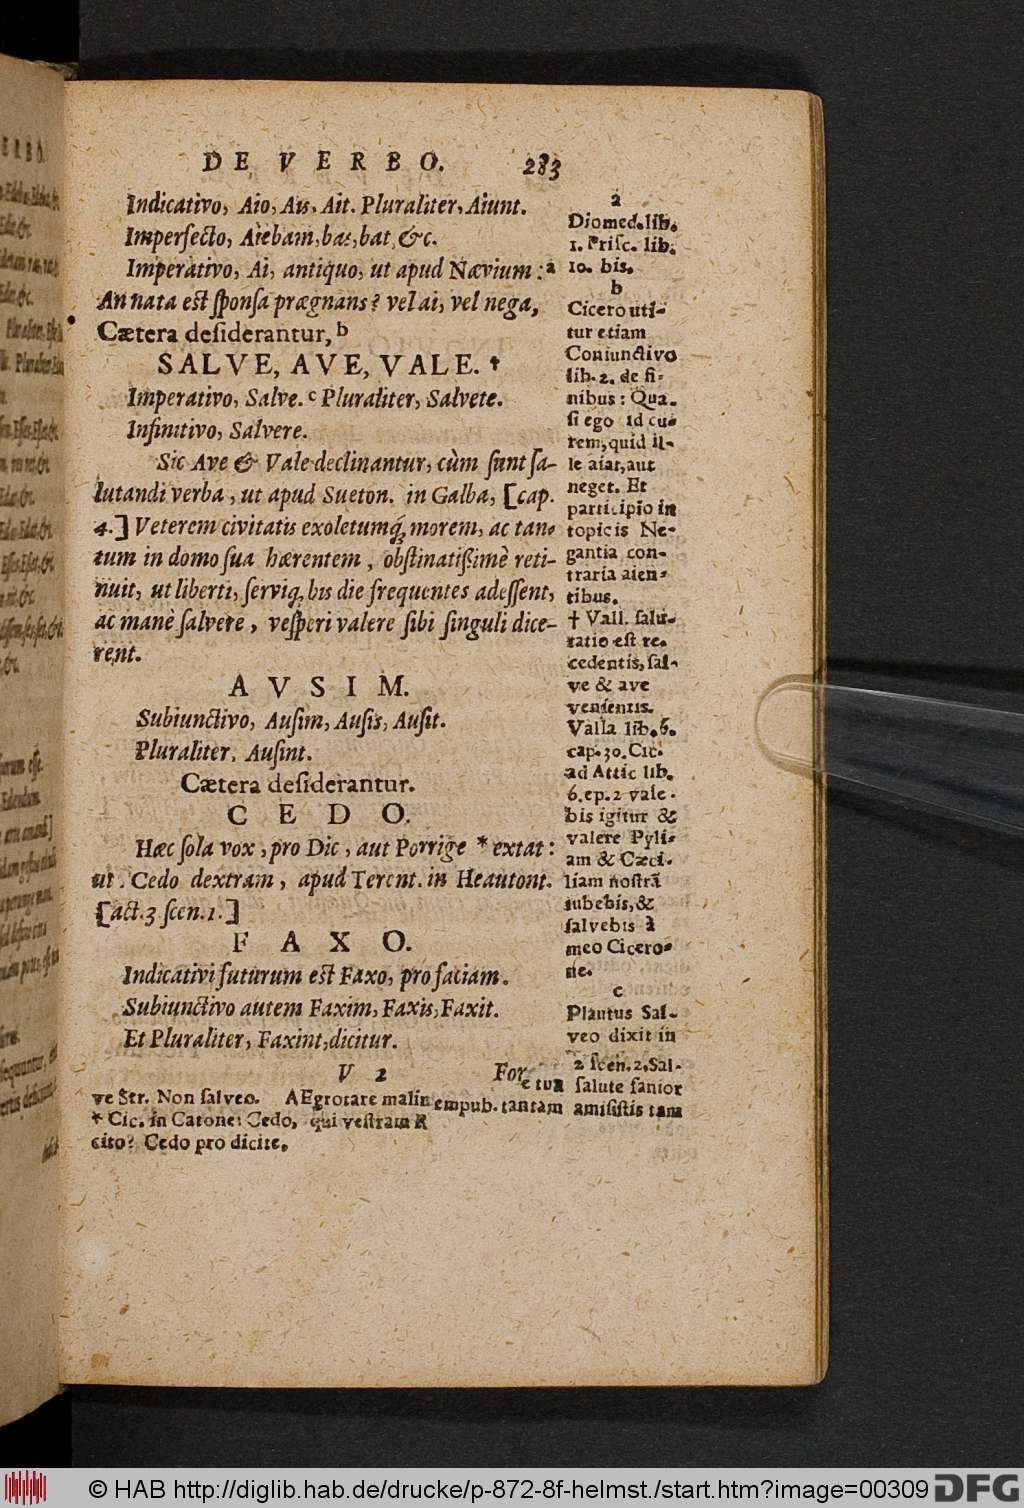 DE VERBO. 283
Indicativo, Aio, Ais, Ait. Pluraliter, Aiunt.
Imperfecto, Aiebam, bas, bat, &c.
Imperativo, Ai, antiquo, ut apud Nævium: a
An nata est sponsa prægnans? vel ai, vel nega,
Cætera desiderantur, b
SALVE, AVE, VALE. †
Imperativo, Salve. c Pluraliter, Salvete.
Infinitivo, Salvere.
Sic Ave & Vale declinantur, cùm sunt sa-
lutandi verba, ut apud Sueton. in Galba, [cap.
4.] Veterem civitatis exoletumq́; morem, ac tan-
tum in domo sua hærentem, obstinatißimè reti-
nuit, ut liberti, serviq́; bis die frequentes adessent,
ac manè salvere, vesperi valere sibi singuli dice-
rent.
AVSIM.
Subiunctivo, Ausim, Ausis, Ausit.
Pluraliter, Ausint.
Cætera desiderantur.
CEDO.
Hæc sola vox, pro Dic, aut Porrige * extat:
ut. Cedo dextram, apud Terent. in Heautont.
[act. 3 scen. 1.]
FAXO.
Indicativi futurum est Faxo, pro faciam.
Subiunctivo autem Faxim, Faxis, Faxit.
Et Pluraliter, Faxint, dicitur.
V 2 For
a
Diomed. lib.
1. Prisc. lib.
10. bis.
b
Cicero uti-
tur etiam
Coniunctivo
lib. 2. de fi-
nibus: Qua-
si ego id cu-
rem, quid il-
le aiat, aut
neget. Et
participio in
topicis Ne-
gantia con-
traria aien-
tibus.
† Vall. salu-
tatio est re-
cedentis, sal-
ve & ave
venientis.
Valla lib. 6.
cap. 30. Cic.
ad Attic lib.
6. ep. 2 vale-
bis igitur &
valere Pyli-
am & Cæci-
liam nostrã
iubebis, &
salvebis à
meo Cicero-
ne.
c
Plautus Sal-
veo dixit in
2 scen. 2. Sal-
ve Str. Non salveo. AEgrotare malim e tua salute sanior
* Cic. in Catone: Cedo, qui vestram Rempub. tantam amisistis tam
cito? Cedo pro dicite.
© HAB http://diglib.hab.de/drucke/p-872-8f-helmst./start.htm?image=00309
DFG